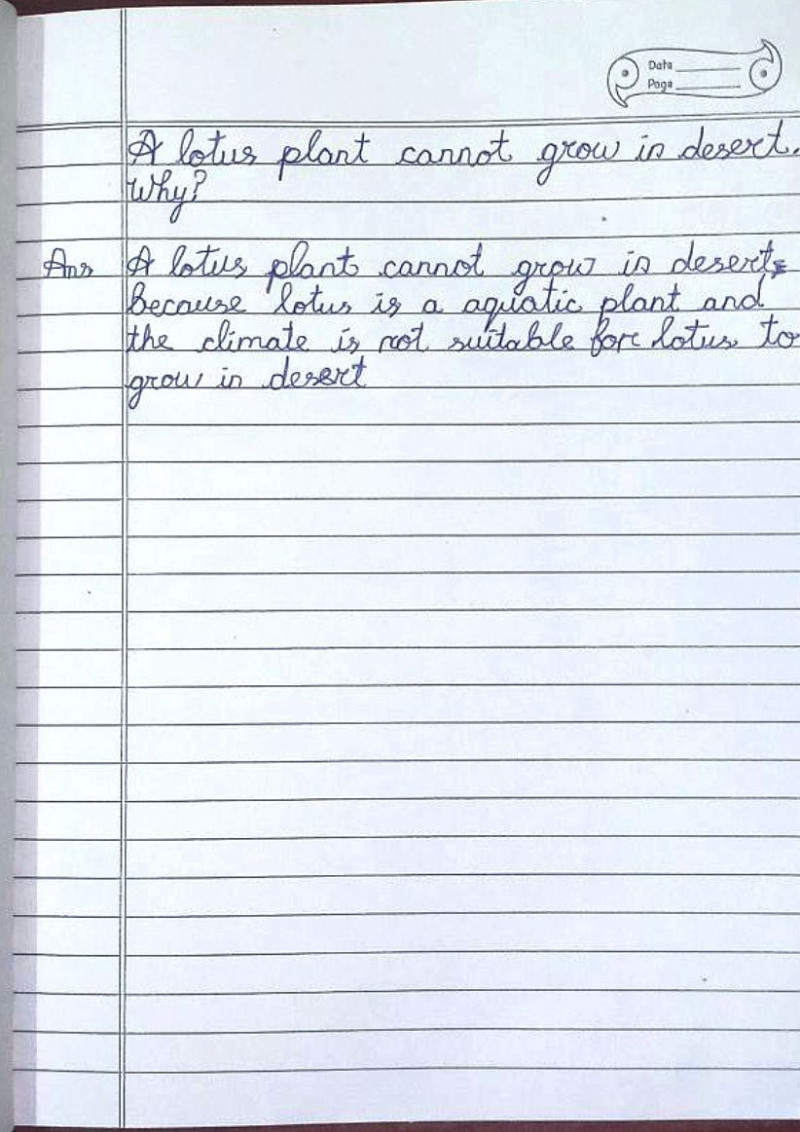 Date
Page
A lotus plant cannot grow in desert.
Why?
Ans A lotus plant cannot grow in desert,
because lotus is a aquatic plant and
the climate is not suitable for lotus to
grow in desert